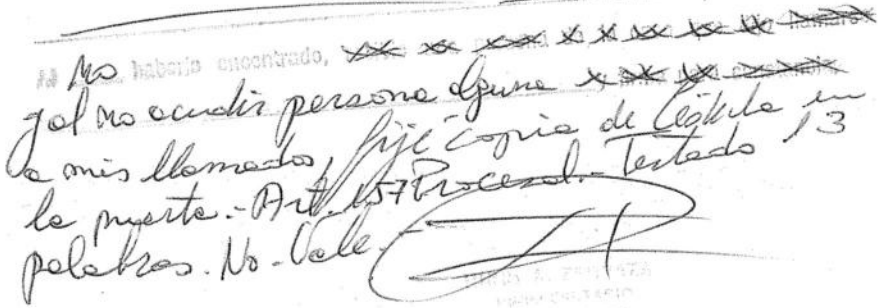 Al No haberlo encontrado,
y al no acudir persona alguna
a mis llamados, fijé copia de Cédula en
la puerta.- Art. 157 Procesal.- Testado 13
palabras. No-Vale.-